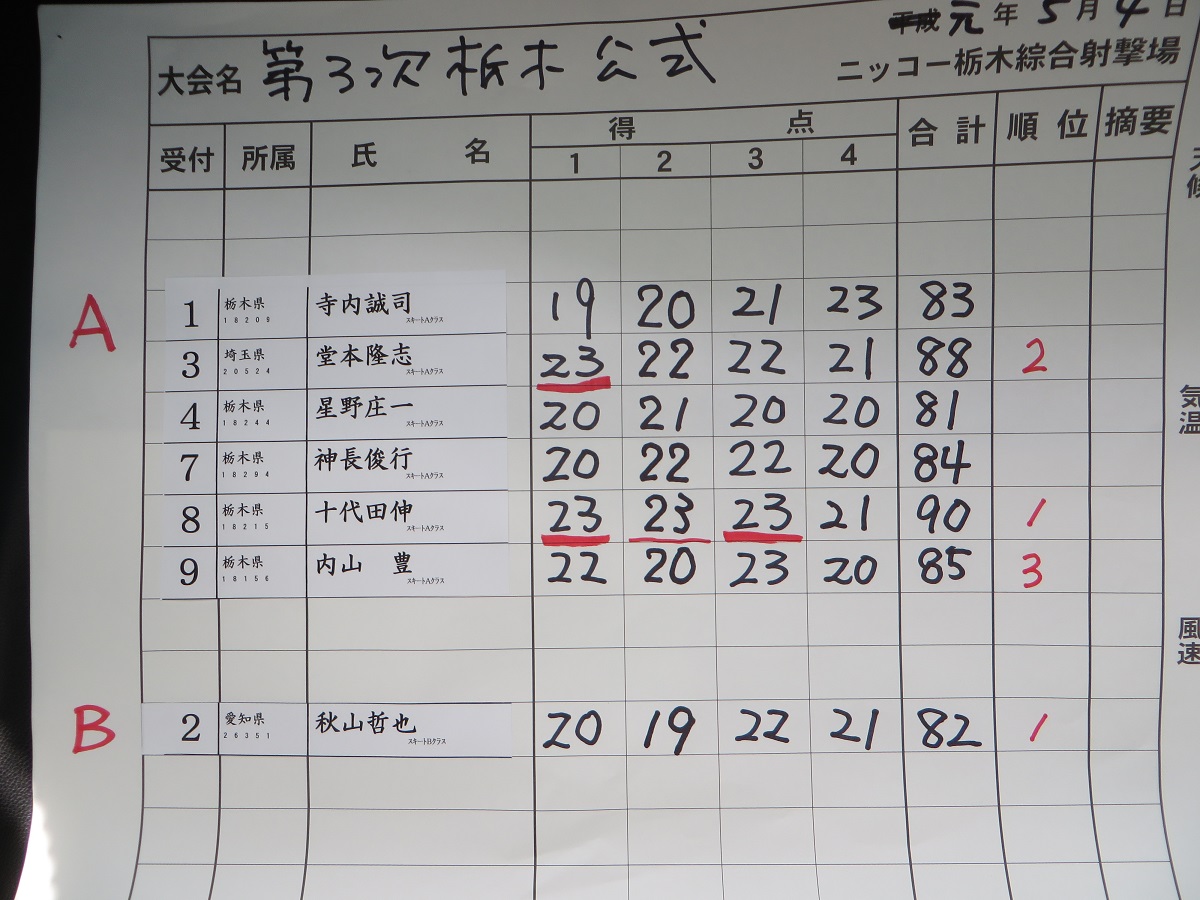 平成 元 年 5 月 4 日
大会名 第3次 栃木 公式 ニッコー栃木綜合射撃場
受付 所属 氏 名 得 点 合計 順位 摘要
1 2 3 4
A
1 栃木県 18209 寺内誠司 スキートAクラス 19 20 21 23 83
3 埼玉県 20524 堂本隆志 スキートAクラス 23 22 22 21 88 2
4 栃木県 18244 星野庄一 スキートAクラス 20 21 20 20 81
7 栃木県 18294 神長俊行 スキートAクラス 20 22 22 20 84
8 栃木県 18215 十代田伸 スキートAクラス 23 23 23 21 90 1
9 栃木県 18156 内山 豊 スキートAクラス 22 20 23 20 85 3
B
2 愛知県 26351 秋山哲也 スキートBクラス 20 19 22 21 82 1
天候
気温
風速